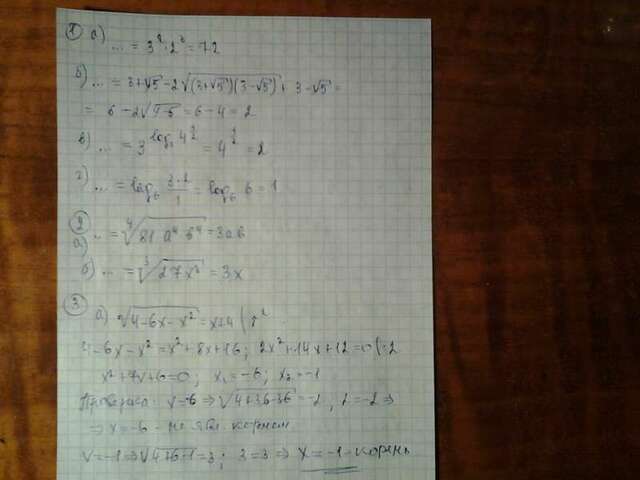 ① а) ... = 3² · 2³ = 72
б) ... = 3+√5 - 2√(3+√5)(3-√5) + 3-√5 =
= 6 - 2√9-5 = 6 - 4 = 2
в) ... = 3^log₃ 4^½ = 4^½ = 2
г) ... = log₆ 3·2/1 = log₆ 6 = 1
② а) ... = ⁴√81 a⁴ b⁴ = 3ab
б) ... = ³√27x³ = 3x
③ а) √4-6x-x² = x+4 (↑²
4-6x-x² = x²+8x+16; 2x²+14x+12=0 (:2
x²+7x+6=0; x₁=-6; x₂=-1
Проверка: x=-6 ⇒ √4+36-36 = -2, 2=-2 ⇒
⇒ x=-6 - не явл. корнем
x=-1 ⇒ √4+6-1 = 3; 3=3 ⇒ x=-1 - корень